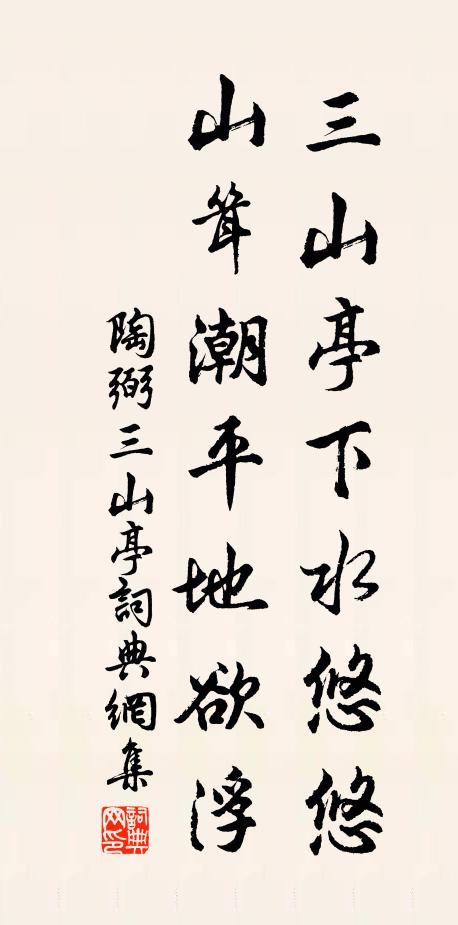 三山亭下水悠悠
山聳潮平地欲浮
陶弼三山亭詞典網集
詞典网印